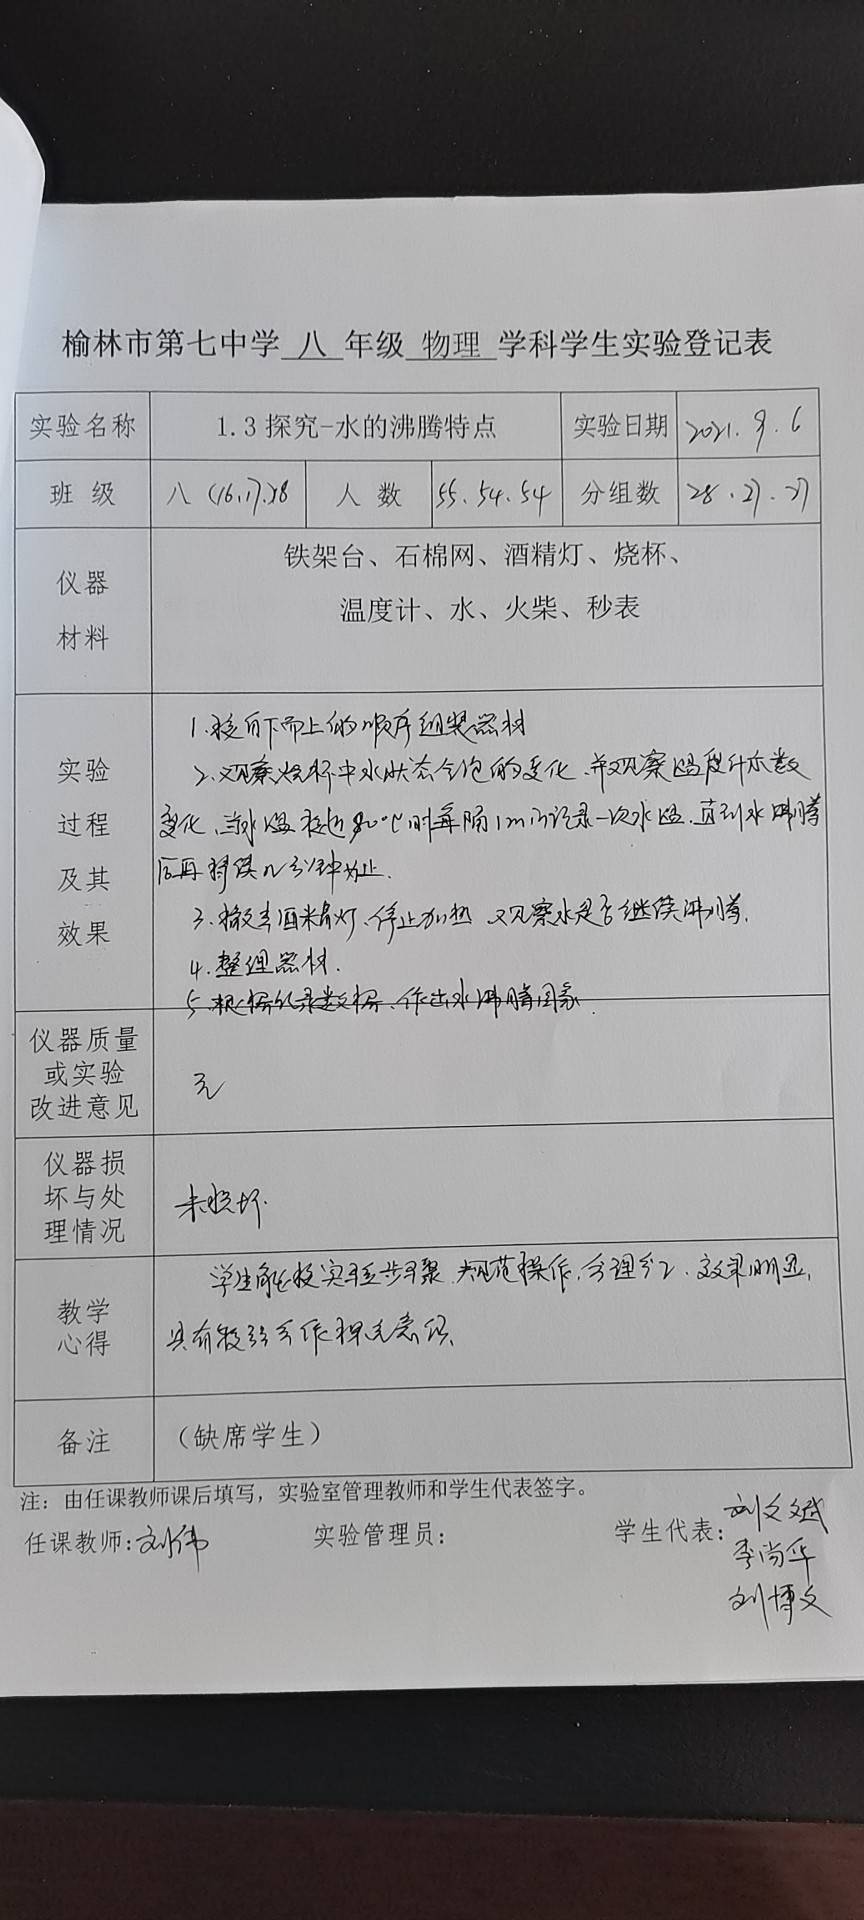 榆林市第七中学 八 年级 物理 学科学生实验登记表
实验名称 1.3探究-水的沸腾特点 实验日期 2021.9.6
班 级 八(16.17.18 人 数 55.54.54 分组数 28.27.27
仪器
材料
铁架台、石棉网、酒精灯、烧杯、
温度计、水、火柴、秒表
实验
过程
及其
效果
1.按自下而上的顺序组装器材
2.观察烧杯中水状态气泡的变化、并观察温度计示数
变化、当水温接近90℃时每隔1min记录一次水温.直到水沸腾
后再持续几分钟为止.
3.撤去酒精灯、停止加热 观察水是否继续沸腾.
4.整理器材.
5.根据纪录数据、作出水沸腾图象.
仪器质量
或实验
改进意见
无
仪器损
坏与处
理情况
未损坏.
教学
心得
学生能按实验步骤.规范操作.合理分工.效果明显,
具有较强合作探究意识.
备注 （缺席学生）
注：由任课教师课后填写，实验室管理教师和学生代表签字。
任课教师:刘伟 实验管理员: 学生代表: 刘文斌
李尚华
刘博文